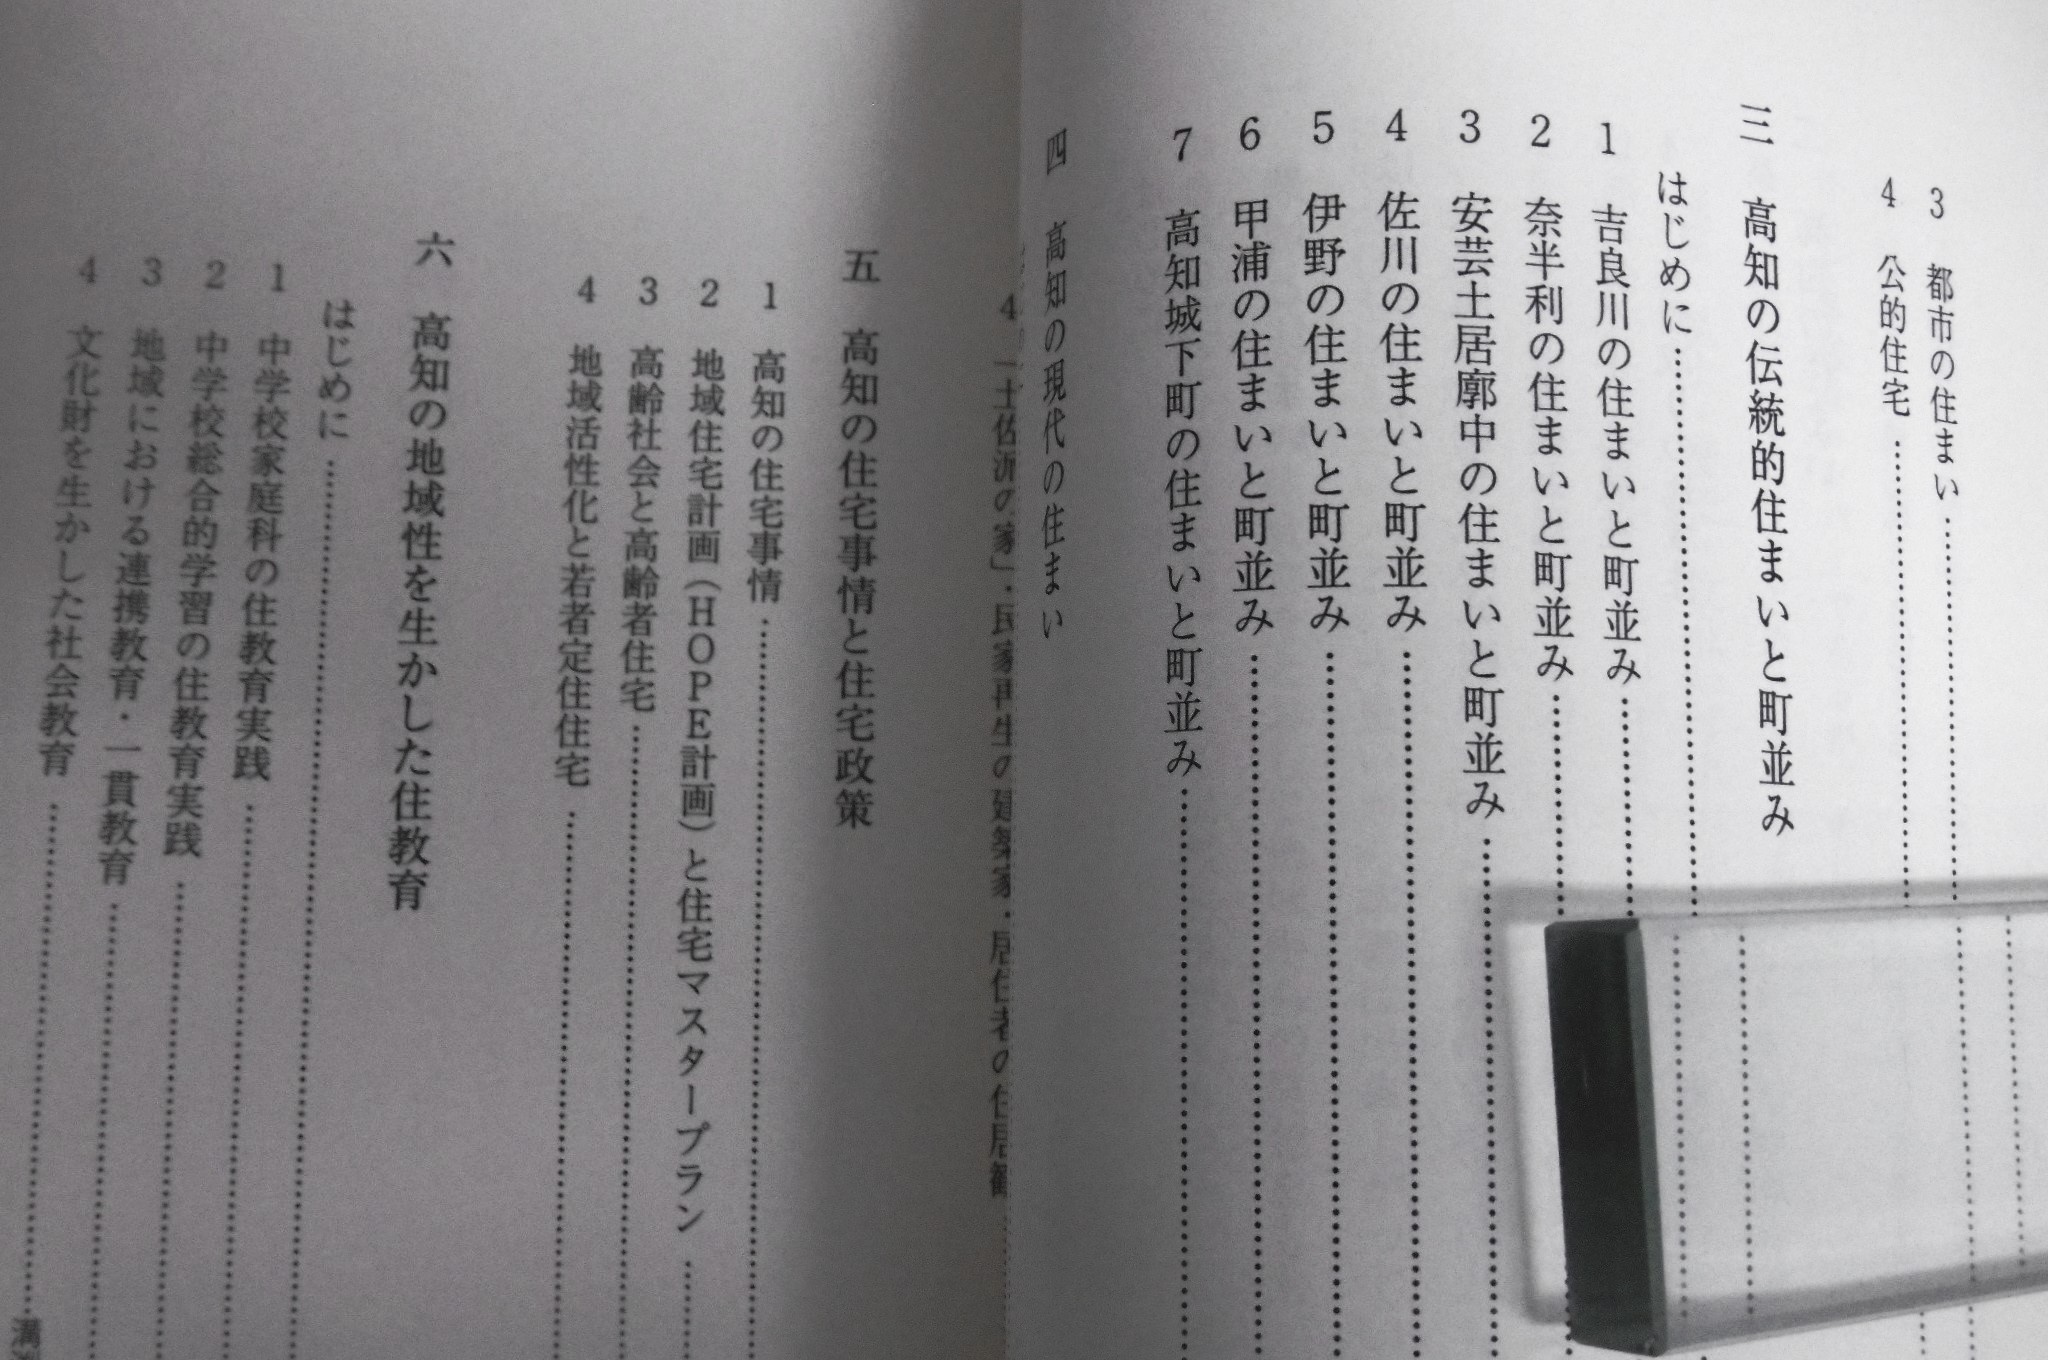 3 都市の住まい
4 公的住宅
三 高知の伝統的住まいと町並み
はじめに
1 吉良川の住まいと町並み
2 奈半利の住まいと町並み
3 安芸土居廓中の住まいと町並み
4 佐川の住まいと町並み
5 伊野の住まいと町並み
6 甲浦の住まいと町並み
7 高知城下町の住まいと町並み
四 高知の現代の住まい
4 「土佐派の家」・民家再生の建築家・居住者の住居観
五 高知の住宅事情と住宅政策
1 高知の住宅事情
2 地域住宅計画(HOPE計画)と住宅マスタープラン
3 高齢社会と高齢者住宅
4 地域活性化と若者定住住宅
六 高知の地域性を生かした住教育
はじめに
1 中学校家庭科の住教育実践
2 中学校総合的学習の住教育実践
3 地域における連携教育・一貫教育
4 文化財を生かした社会教育
溝